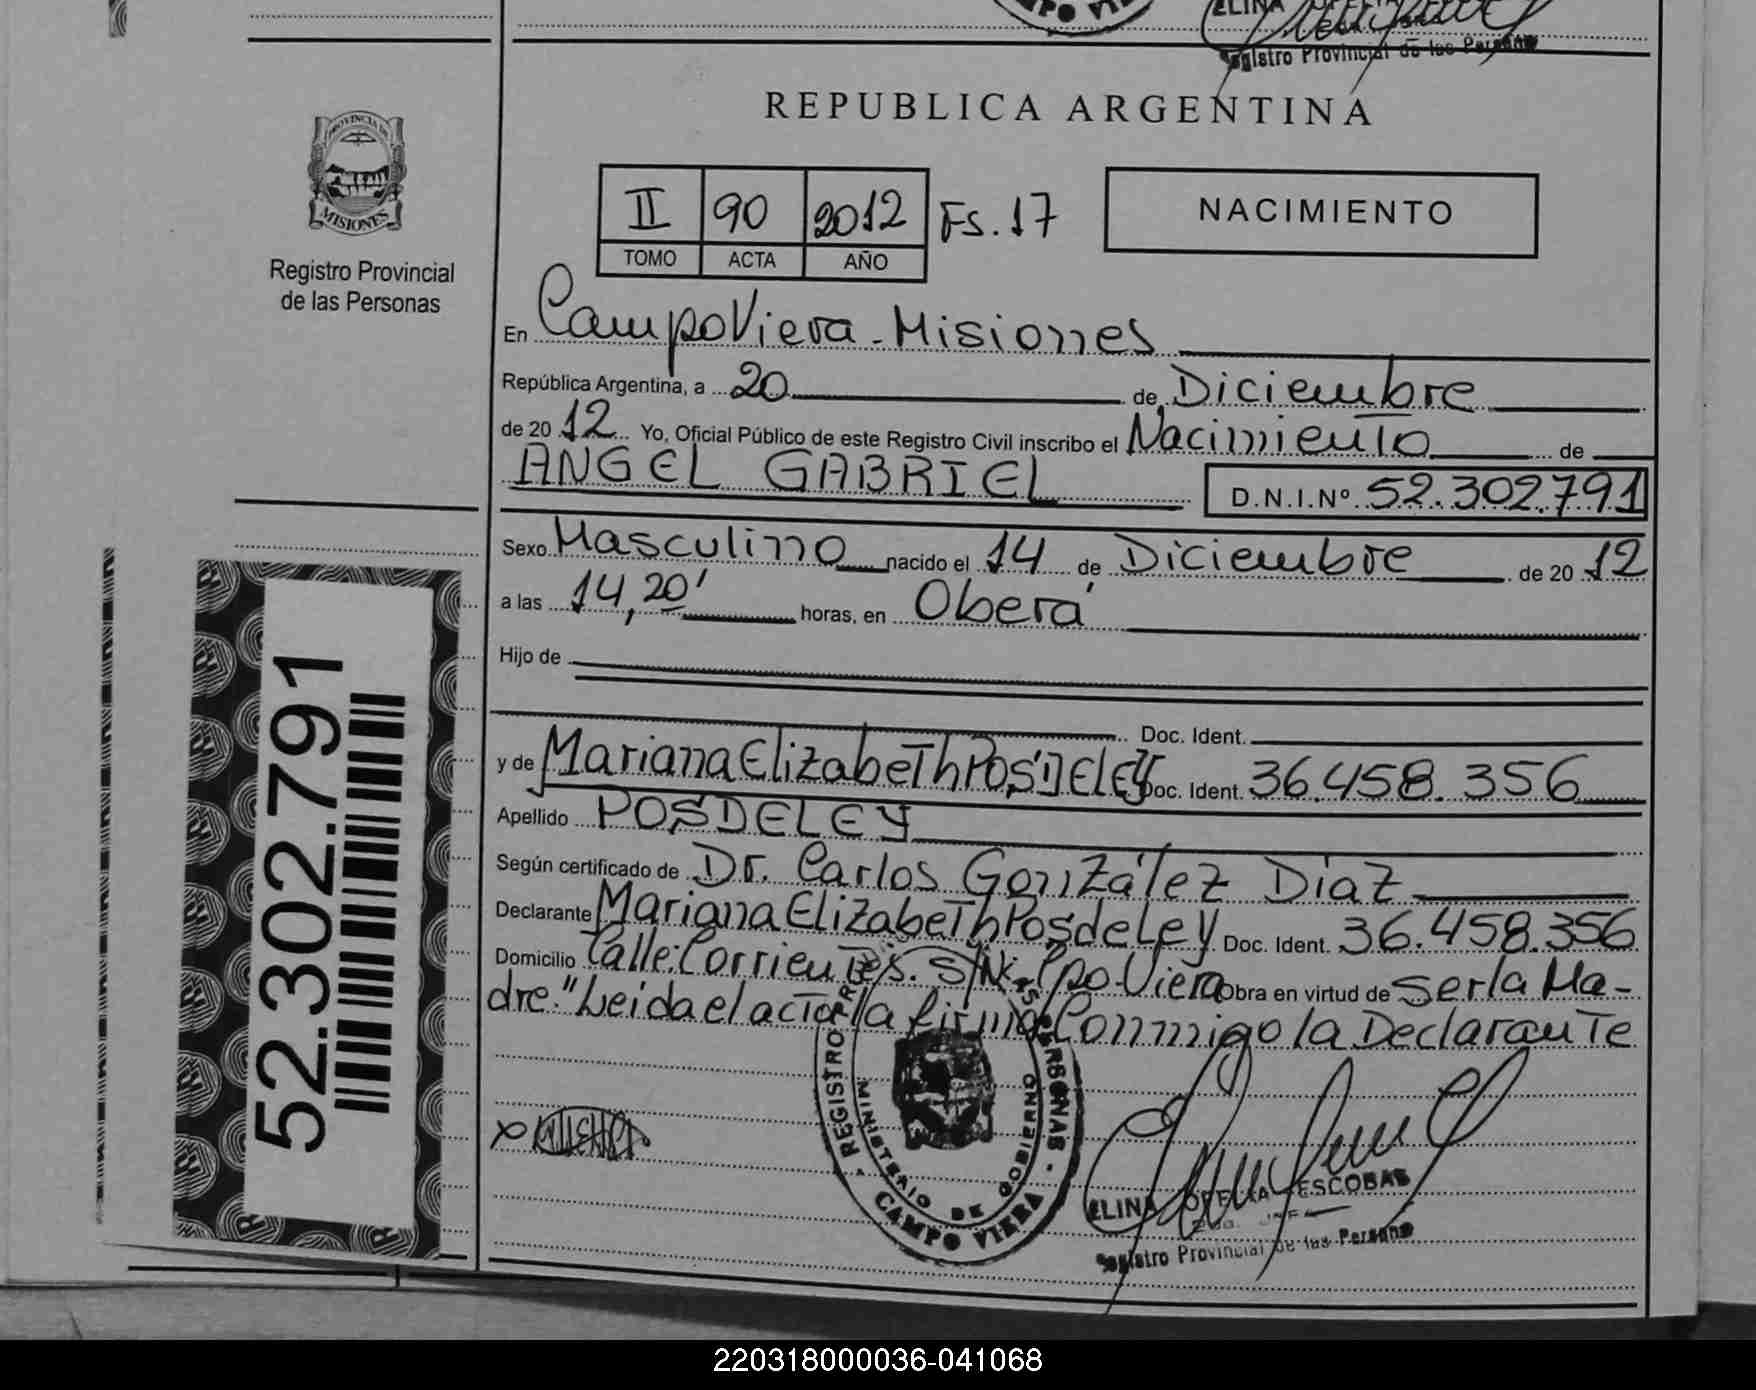 ELINA
Registro Provincial de las Personas
REPUBLICA ARGENTINA
PROVINCIA DE
MISIONES
Registro Provincial
de las Personas
II 90 2012 Fs. 17
TOMO ACTA AÑO
NACIMIENTO
En Campo Viera - Misiones
República Argentina, a 20 de Diciembre
de 20 12 Yo, Oficial Público de este Registro Civil inscribo el Nacimiento de
ANGEL GABRIEL D.N.I.Nº 52.302.791
Sexo Masculino nacido el 14 de Diciembre de 20 12
a las 14,20' horas, en Oberá
Hijo de
Doc. Ident.
y de Mariana Elizabeth POSDELEY Doc. Ident. 36.458.356
Apellido POSDELEY
Según certificado de Dr. Carlos González Díaz
Declarante Mariana Elizabeth Posdeley Doc. Ident. 36.458.356
Domicilio Calle: Corrientes. S/N. Cpo. Viera Obra en virtud de Ser la Ma-
dre." Leida el acta la firma Conmigo la Declarante
52.302.791
REGISTRO PERSONAS
MINISTERIO DE GOBIERNO
CAMPO VIERA
ELINA OFELIA ESCOBAR
Registro Provincial de las Personas
220318000036-041068